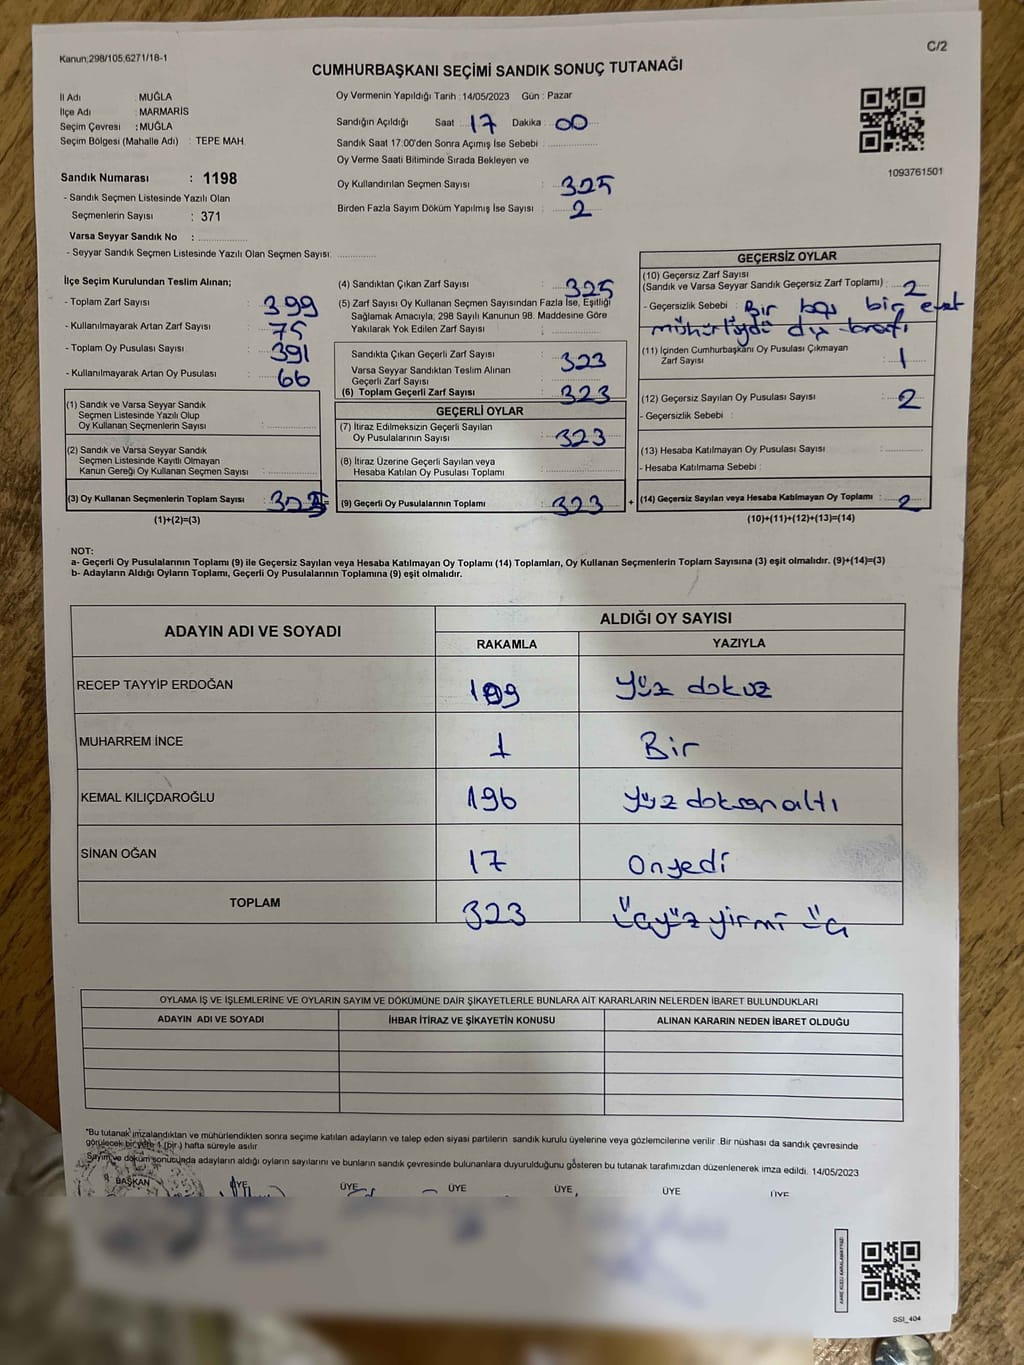 Kanun;298/105;6271/18-1
C/2
CUMHURBAŞKANI SEÇİMİ SANDIK SONUÇ TUTANAĞI
İl Adı : MUĞLA
İlçe Adı : MARMARİS
Seçim Çevresi : MUĞLA
Seçim Bölgesi (Mahalle Adı) : TEPE MAH.
Oy Vermenin Yapıldığı Tarih : 14/05/2023 Gün : Pazar
Sandığın Açıldığı Saat 17 Dakika 00
Sandık Saat 17:00'den Sonra Açımış İse Sebebi :
Oy Verme Saati Bitiminde Sırada Bekleyen ve
Oy Kullandırılan Seçmen Sayısı : 325
Birden Fazla Sayım Döküm Yapılmış İse Sayısı : 2
1093761501
Sandık Numarası : 1198
- Sandık Seçmen Listesinde Yazılı Olan
Seçmenlerin Sayısı : 371
Varsa Seyyar Sandık No :
- Seyyar Sandık Seçmen Listesinde Yazılı Olan Seçmen Sayısı:
İlçe Seçim Kurulundan Teslim Alınan;
- Toplam Zarf Sayısı : 399
- Kullanılmayarak Artan Zarf Sayısı : 75
- Toplam Oy Pusulası Sayısı : 391
- Kullanılmayarak Artan Oy Pusulası : 66
(1) Sandık ve Varsa Seyyar Sandık
Seçmen Listesinde Yazılı Olup
Oy Kullanan Seçmenlerin Sayısı :
(2) Sandık ve Varsa Seyyar Sandık
Seçmen Listesinde Kayıtlı Olmayan
Kanun Gereği Oy Kullanan Seçmen Sayısı :
(3) Oy Kullanan Seçmenlerin Toplam Sayısı : 325
(1)+(2)=(3)
(4) Sandıktan Çıkan Zarf Sayısı : 325
(5) Zarf Sayısı Oy Kullanan Seçmen Sayısından Fazla İse, Eşitliği
Sağlamak Amacıyla, 298 Sayılı Kanunun 98. Maddesine Göre
Yakılarak Yok Edilen Zarf Sayısı :
Sandıkta Çıkan Geçerli Zarf Sayısı : 323
Varsa Seyyar Sandıktan Teslim Alınan
Geçerli Zarf Sayısı
(6) Toplam Geçerli Zarf Sayısı : 323
GEÇERLİ OYLAR
(7) İtiraz Edilmeksizin Geçerli Sayılan
Oy Pusulalarının Sayısı : 323
(8) İtiraz Üzerine Geçerli Sayılan veya
Hesaba Katılan Oy Pusulası Toplamı :
(9) Geçerli Oy Pusulalarının Toplamı : 323
GEÇERSİZ OYLAR
(10) Geçersiz Zarf Sayısı
(Sandık ve Varsa Seyyar Sandık Geçersiz Zarf Toplamı) : 2
- Geçersizlik Sebebi : Bir boş bir evet
mühürlüydü dış
(11) İçinden Cumhurbaşkanı Oy Pusulası Çıkmayan
Zarf Sayısı : 1
(12) Geçersiz Sayılan Oy Pusulası Sayısı : 2
- Geçersizlik Sebebi :
(13) Hesaba Katılmayan Oy Pusulası Sayısı :
- Hesaba Katılmama Sebebi :
+ (14) Geçersiz Sayılan veya Hesaba Katılmayan Oy Toplamı : 2
(10)+(11)+(12)+(13)=(14)
NOT:
a- Geçerli Oy Pusulalarının Toplamı (9) ile Geçersiz Sayılan veya Hesaba Katılmayan Oy Toplamı (14) Toplamları, Oy Kullanan Seçmenlerin Toplam Sayısına (3) eşit olmalıdır. (9)+(14)=(3)
b- Adayların Aldığı Oyların Toplamı, Geçerli Oy Pusulalarının Toplamına (9) eşit olmalıdır.
ADAYIN ADI VE SOYADI
ALDIĞI OY SAYISI
RAKAMLA YAZIYLA
RECEP TAYYİP ERDOĞAN 109 Yüz dokuz
MUHARREM İNCE 1 Bir
KEMAL KILIÇDAROĞLU 196 Yüz doksan altı
SİNAN OĞAN 17 Onyedi
TOPLAM 323 Üçyüz yirmi üç
OYLAMA İŞ VE İŞLEMLERİNE VE OYLARIN SAYIM VE DÖKÜMÜNE DAİR ŞİKAYETLERLE BUNLARA AİT KARARLARIN NELERDEN İBARET BULUNDUKLARI
ADAYIN ADI VE SOYADI İHBAR İTİRAZ VE ŞİKAYETİN KONUSU ALINAN KARARIN NEDEN İBARET OLDUĞU
*Bu tutanak imzalandıktan ve mühürlendikten sonra seçime katılan adayların ve talep eden siyasi partilerin sandık kurulu üyelerine veya gözlemcilerine verilir. Bir nüshası da sandık çevresinde
görülecek bir yere 1 (bir) hafta süreyle asılır
Sayım ve döküm sonucunda adayların aldığı oyların sayılarını ve bunların sandık çevresinde bulunanlara duyurulduğunu gösteren bu tutanak tarafımızdan düzenlenerek imza edildi. 14/05/2023
BAŞKAN ÜYE ÜYE ÜYE ÜYE ÜYE ÜYE
SSI_404